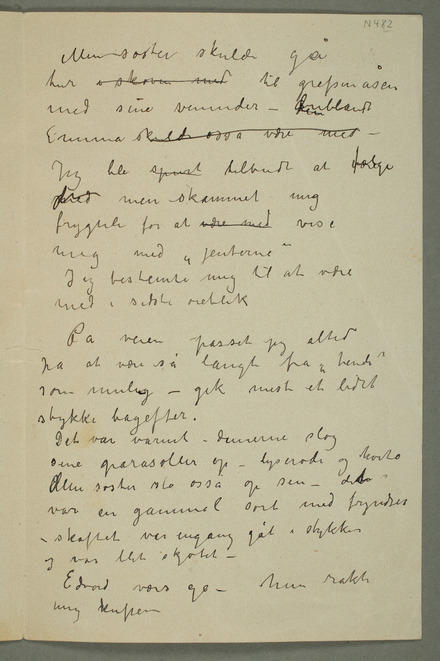 N482
Min søster skulde gå
tur i skoven med til grefsenåsen
med sine veninder – Iblandt
Emma skulde osså være med –
Jeg ble spurt tilbudt at følge
med men skammet mig
frygteli for at være med vise
mig med „jenterne"
Jeg bestemte mig til at være
med i sidste øieblik
På veien passet jeg altid
på at være så langt fra „hende"
som mulig – gik mest et lidet
stykke bagefter.
Det var varmt – damerne slog
sine parasoller op – lyserøde og hvite
Min søster slo osså op sin – det
var en gammel sort med fryndser
– skaftet var engang gåt i stykker
og var blit skjøtet –
Edvard værs go – hun rakte
mig kuften